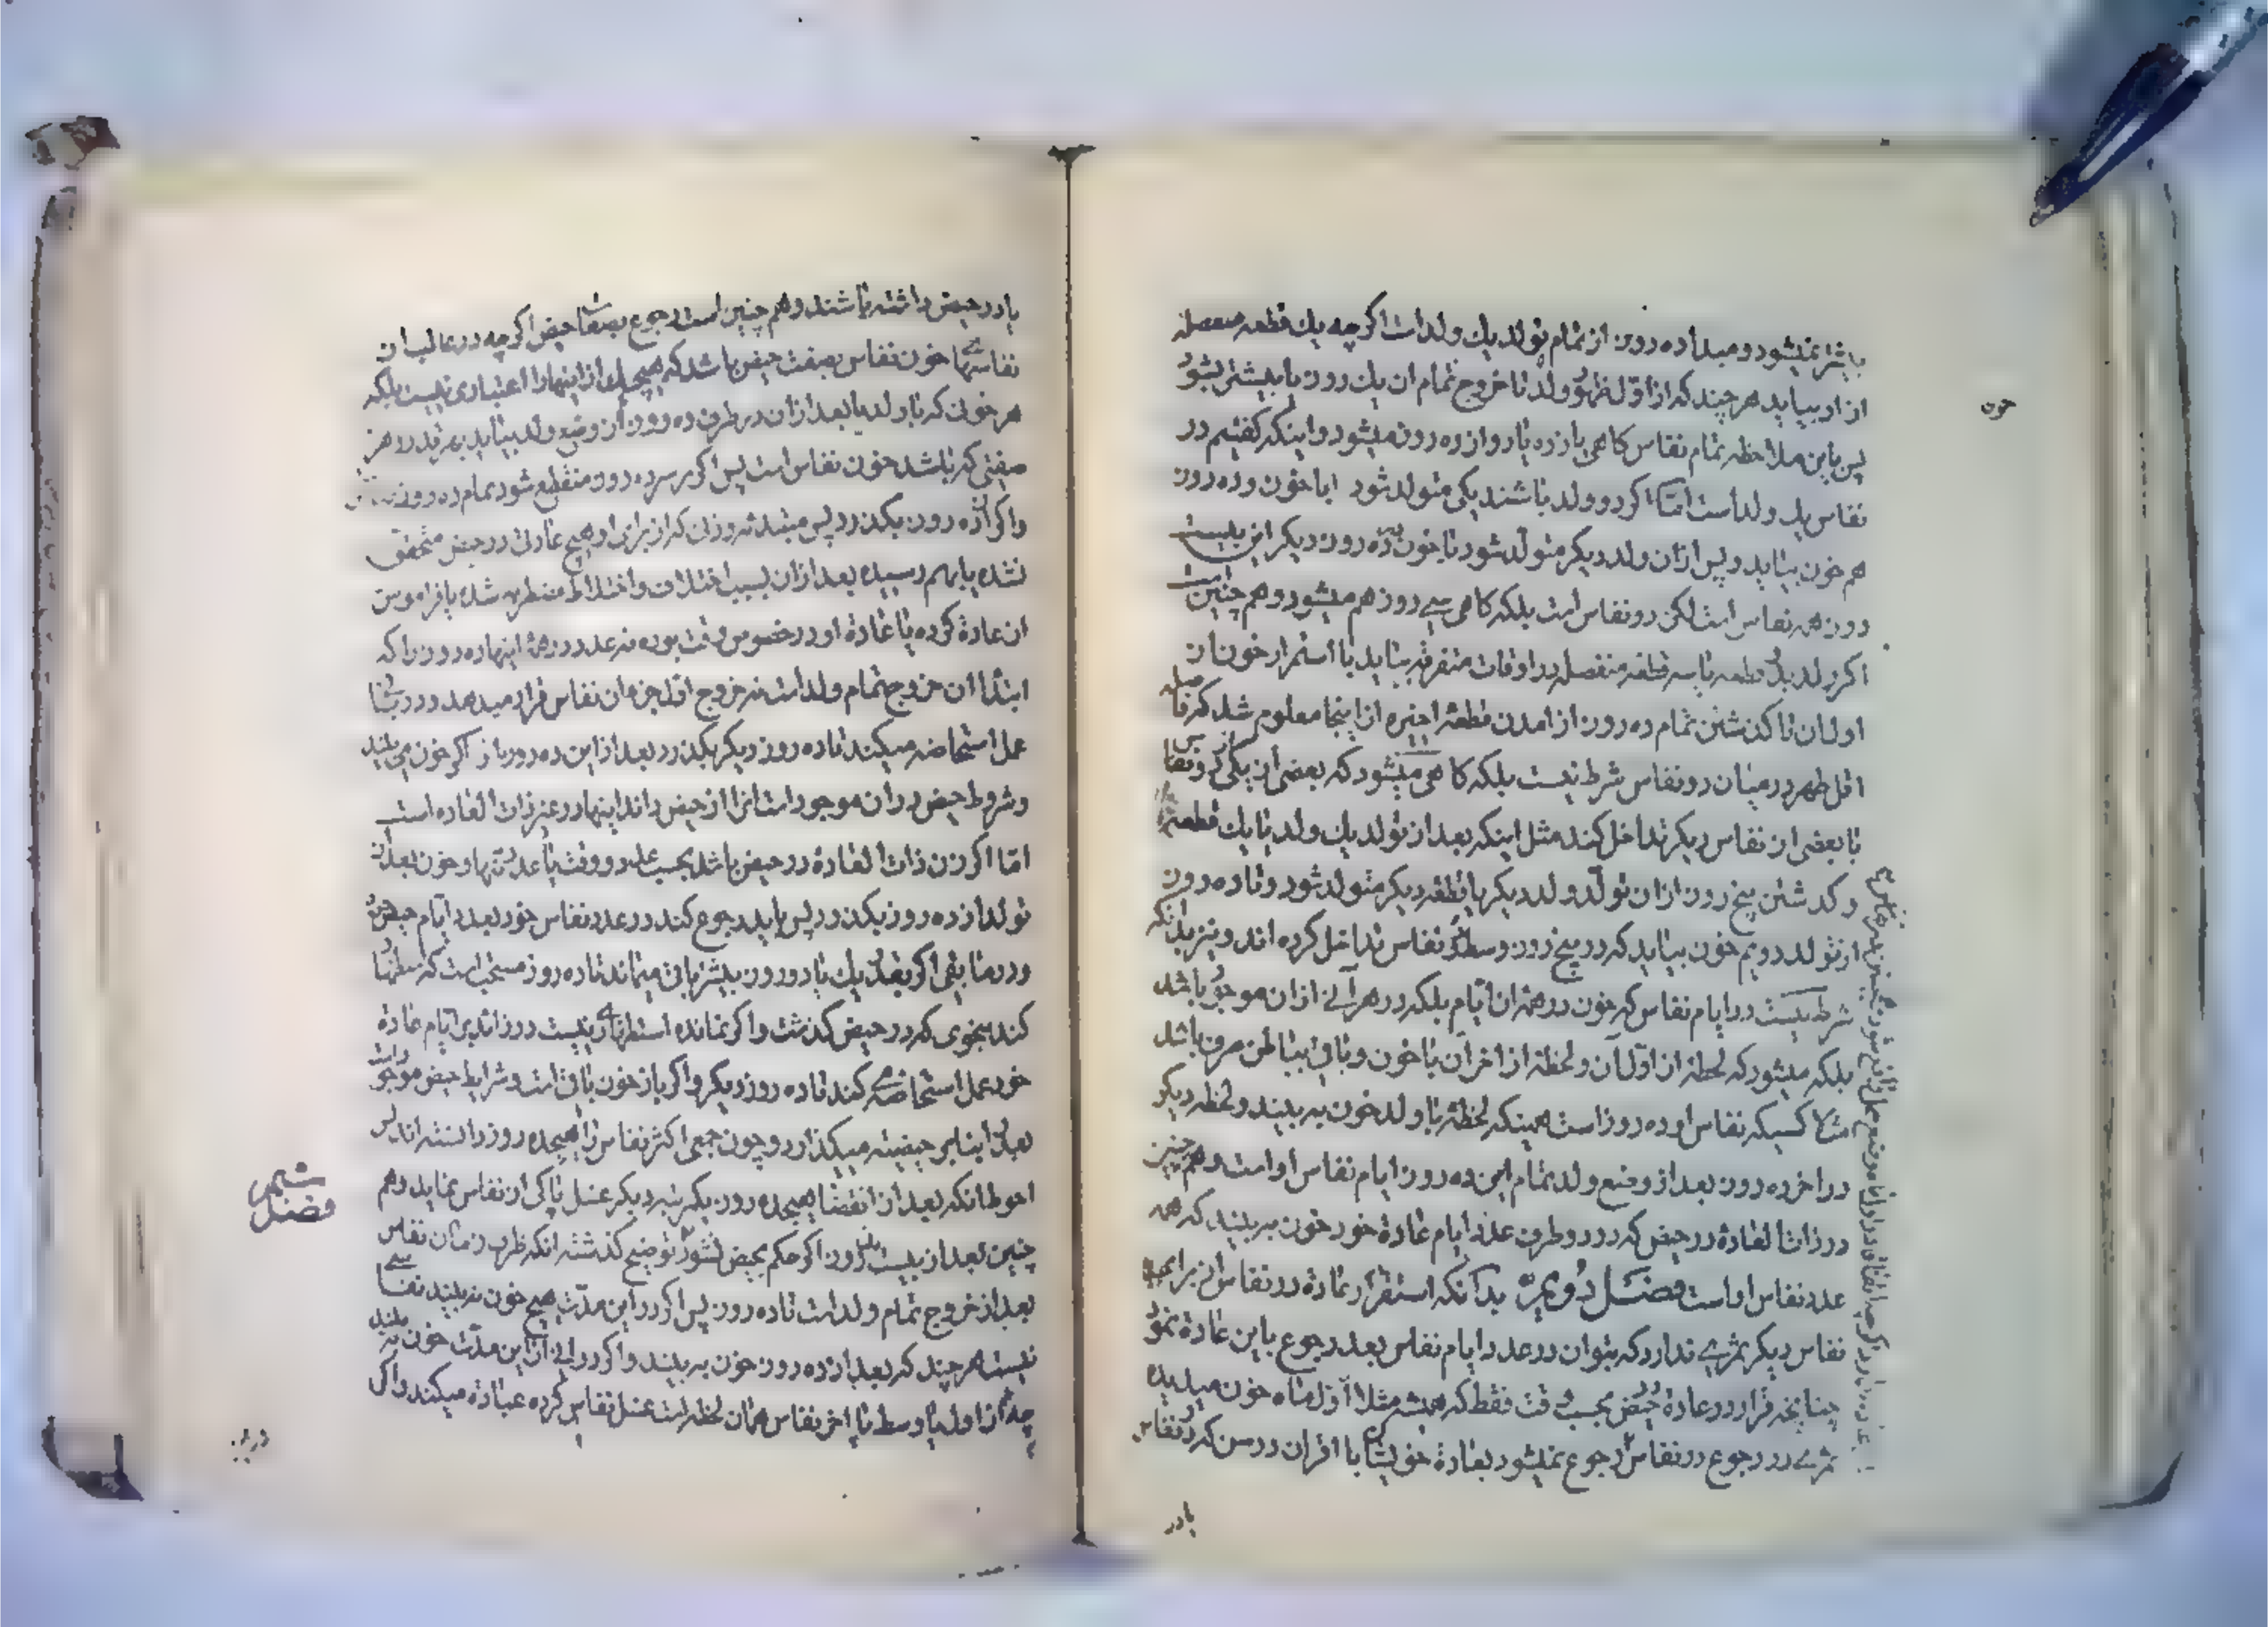 یا بیشتر نمیشود و مبدا ده روز از تمام تولد یك ولد است اگر چه یك قطعه منفصله
از او بیاید هر چند که از اول ظهور ولد تا خروج تمام ان یك روز یا بیشتر بشود
پس باین ملاحظه تمام نفاس کاهی یازده یا دوازده روز میشود و اینکه کفتیم در
نفاس یك ولد است امّا اکر دو ولد باشند یکی متولد شود با خون و ده روز
هم خون بیاید و پس ازان ولد دیکر متولد شود با خون تا ده روز دیکر این بیست
روز همه نفاس است لکن دو نفاس است بلکه کاهی سی روز هم میشود و هم چنین است
اکر ولد قطعه یا سه قطعه منفصله در اوقات متفرقه بیاید با استمرار خون از
اول ان تا کذشتن تمام ده روز از امدن قطعهٔ اخیره از اینجا معلوم شد که فاصله
اقل طهر در میان دو نفاس شرط نیست بلکه کاهی میشود که بعضی از یکی دو نفاس
با بعضی از نفاس دیکر تداخل کند مثل اینکه بعد از تولد یك ولد یا یك قطعه
و کذشتن پنج روز از ان تولد ولد دیکر یا قطعه دیکر متولد شود و تا ده روز
از تولد دویم خون بیاید که در پنج روز وسط دو نفاس تداخل کرده اند و نیز بدانکه
شرط نیست در ایام نفاس که خون در همه ان ایام بلکه در هر آنی از ان موجود باشد
بلکه میشود که لحظهٔ از اوّل آن و لحظهٔ از اخر آن با خون و باقی بیاض صرف باشد
مثلا کسیکه نفاس او ده روز است همینکه لحظهٔ با ولد خون به بیند و لحظه دیکر
در اخر ده روز بعد از وضع ولد تمام این ده روز ایام نفاس او است و هم چنین
در ذات العادة در حیض که در دو طرف عدد ایام عادة خود خون به بیند که همه
عدد نفاس او است فصل دویم بدانکه استقرار عادة در نفاس از برای
نفاس دیکر ثمری ندارد که بتوان در عدد ایام نفاس بعد رجوع باین عادة نمود
چنانچه قرار در عادة حیض بحسب وقت فقط که همیشه مثلا اول ماه خون میدیده
ثمری در رجوع در نفاس رجوع نمیشود بعادة خویشان یا اقران در سن که در نفاس
خون
یا در
یا در حیض داشته باشند و هم چنین است رجوع بصفات حیض اکر چه در غالب ان
نفاسها خون نفاس بصفت حیض باشد که هیچیك از اینها را اعتباری نیست بلکه
هر خونی که با ولد یا بعد ازان در ظرف ده روز از وضع ولد بیاید بهر قدر و هر
صفتی که باشد خون نفاس است پس اکر بر سر ده روز منقطع شود تمام ده روز
و اکر از ده روز بکذرد پس مبتدئه و زنی که از برای او هیچ عادتی در حیض متحقق
نشده یا بهم رسیده بعد ازان بسبب اختلاف و اختلاط مضطربه شده یا فراموش
ان عادة کرده یا عادة او در خصوص وقت بوده نه عدد در همهٔ اینها ده روز را که
ابتدا ان خروج تمام ولد است نه خروج اول جزء ان نفاس قرار میدهد و در
عمل استحاضه میکند تا ده روز دیکر بکذرد بعد از این ده روز باز اکر خون می بیند
و شروط حیض در ان موجود است انرا از حیض داند اینها در غیر ذات العاده است
امّا اکر زن ذات العادة در حیض باشد بحسب عدد و وقت یا عدد تنها و خون بعد از
تولد از ده روز بکذرد پس باید رجوع کند در عدد نفاس خود بعدد ایّام حیض خود
و در ما بقی اکر بقدر یك یا دو روز بیشتر باقی میماند تا ده روز مستحب است که استظهار
کند بنحوی که در حیض کذشت و اکر نمانده استظهاری نیست در زاید بر ایّام عادة
خود عمل استحاضه کند تا ده روز دیکر و اکر باز خون باقی است و شرایط حیض موجود است
بعد بنا بر حیضیته میکذارد و چون جمعی اکثر نفاس را هیجده روز دانسته اند پس
احوط انکه بعد از انقضا هیجده روز یکمرتبه دیکر غسل پاکی از نفاس نماید و هم
چنین بعد از بیست روز اکر حکم بحیض نشود توضیح کذشته انکه ظرف زمان نفاس
بعد از خروج تمام ولد است تا ده روز پس اکر در این مدّت هیچ خون نه بیند نفاسی
نیست هر چند که بعد از ده روز خون به بیند و اکر در انی از این مدّت خون به بیند
چه از اول یا وسط یا اخر نفاس همان لحظه است غسل نفاس کرده عبادة میکند و اکر
فصل